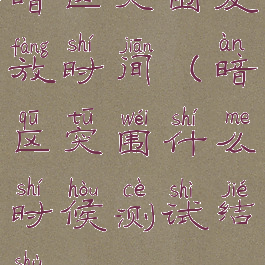 暗区突围发
fàng shí jiān àn
放时间（暗
qū tū wéi shí me
区突围什么
shí hòu cè shì jié
时候测试结
shù